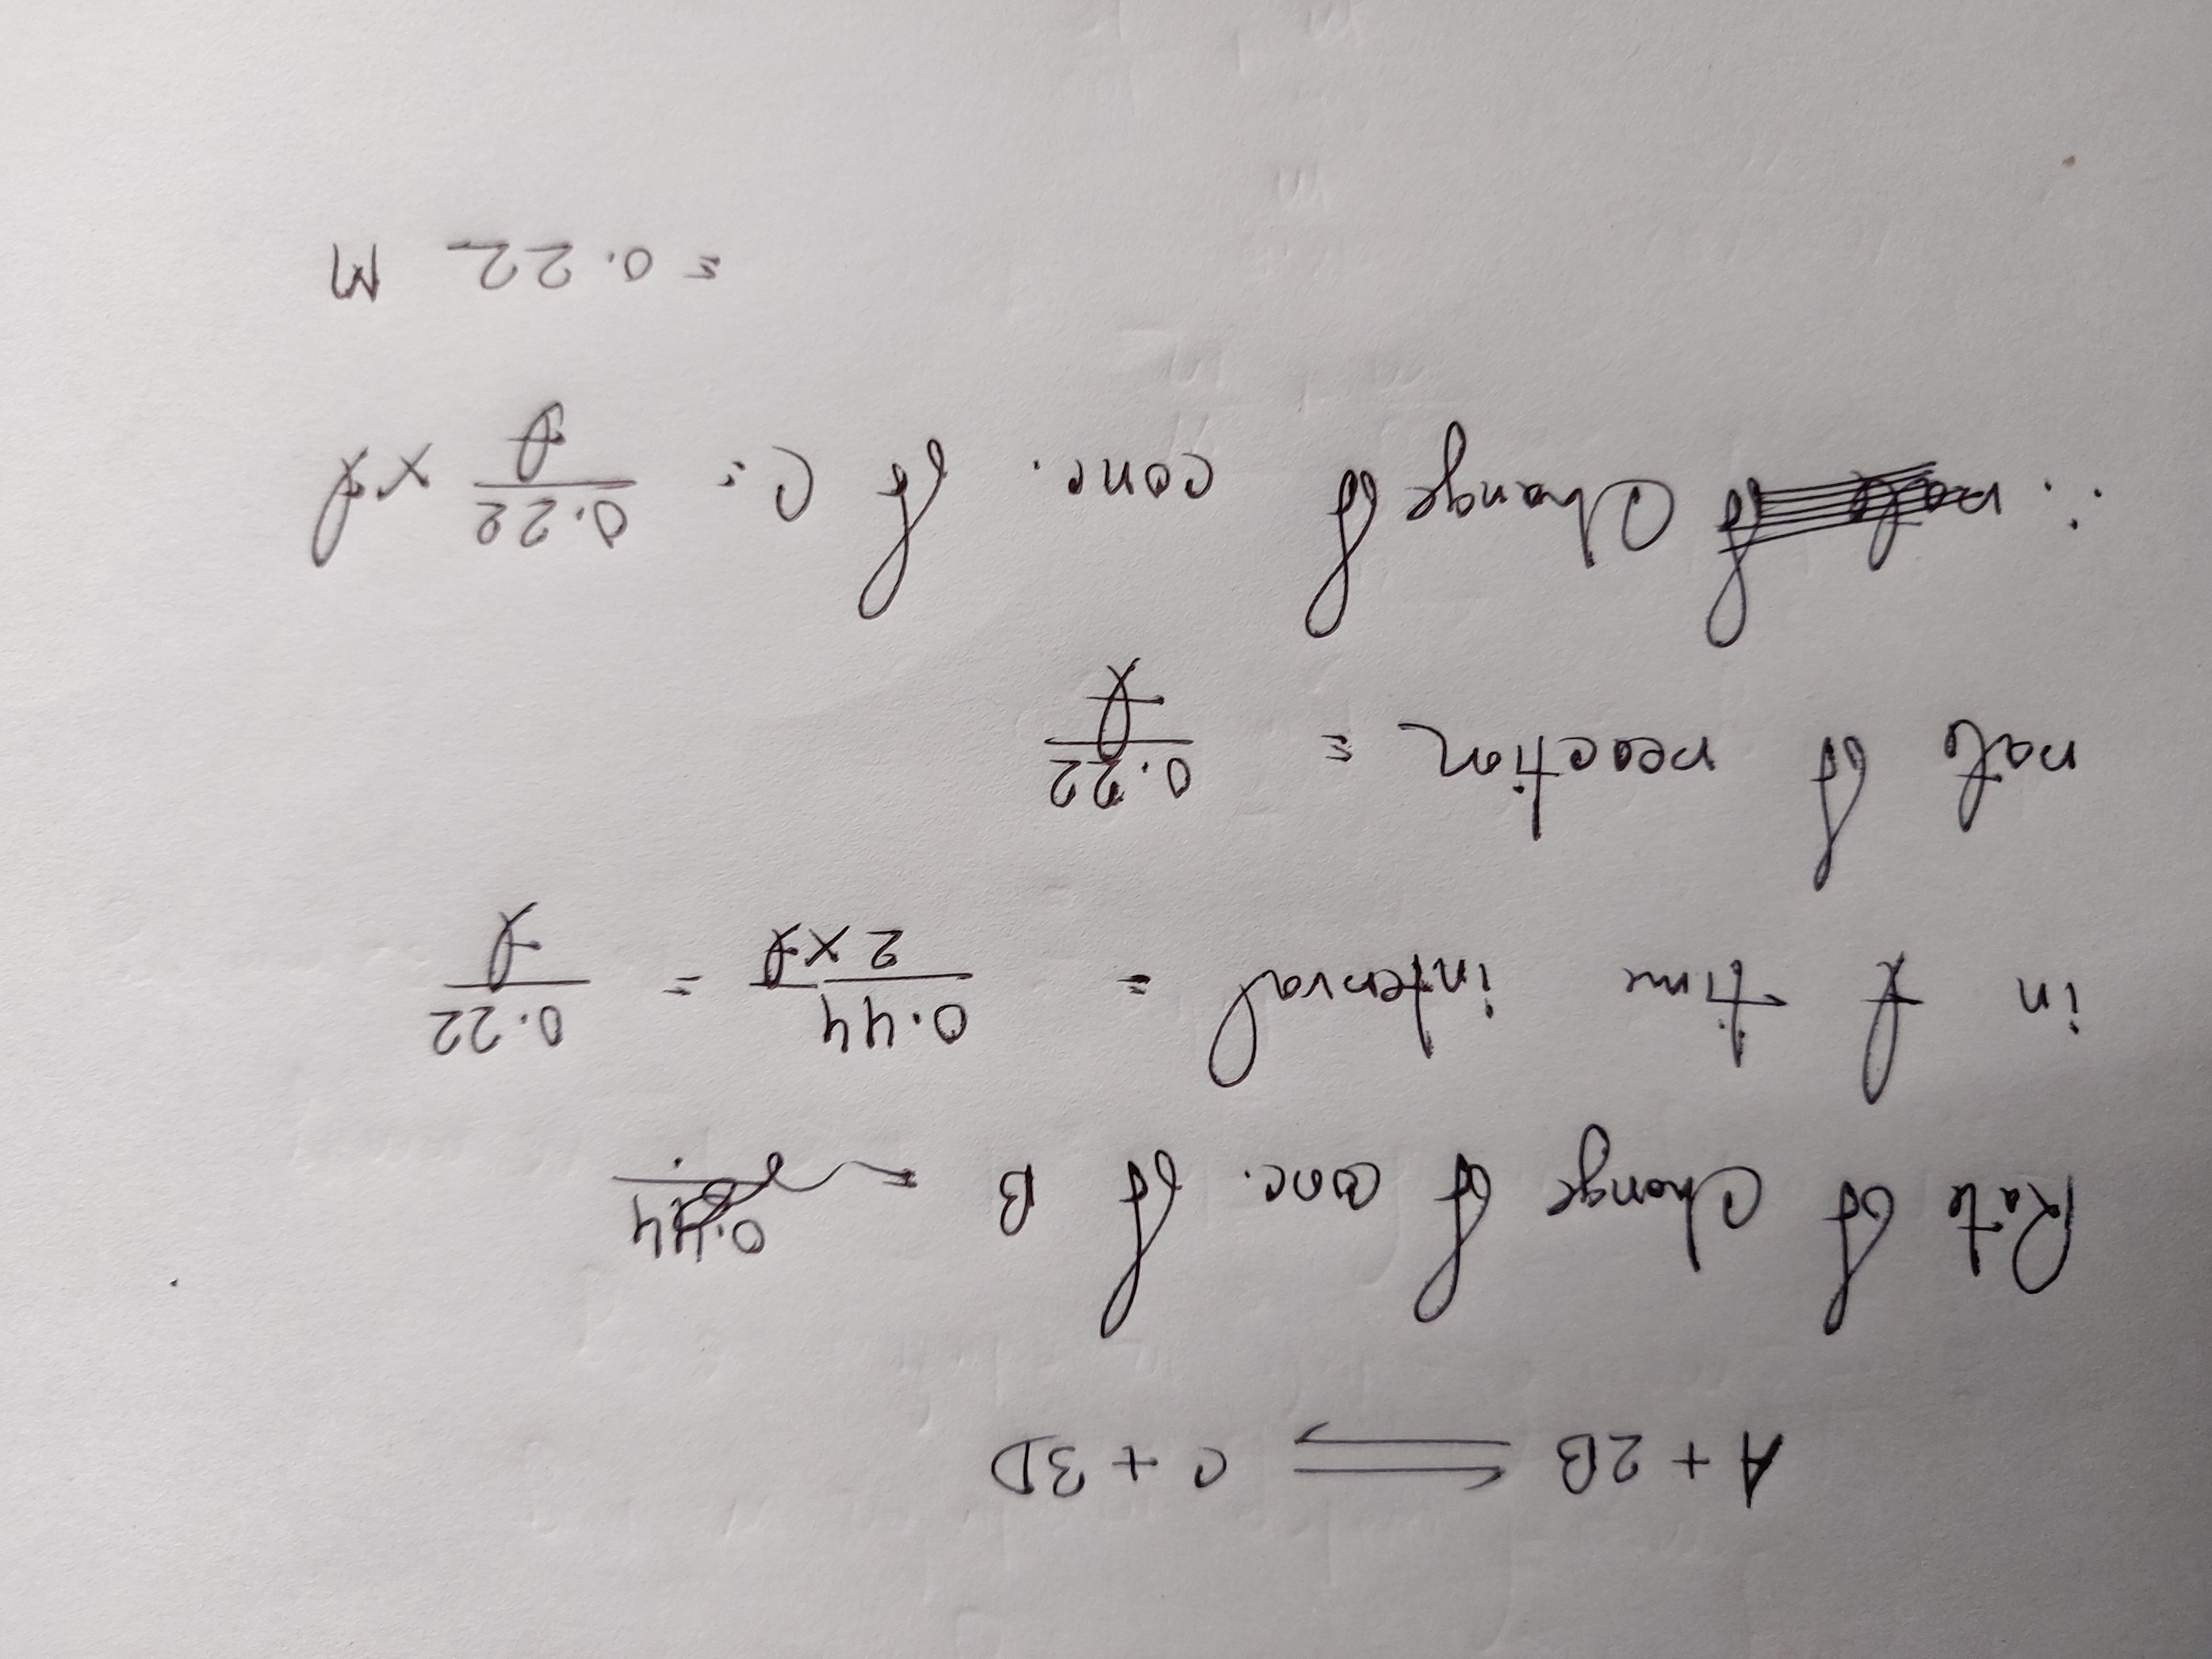 A + 2B ⇌ C + 3D
Rate of change of conc. of B =
in t time interval = 0.44/2×t = 0.22/t
rate of reaction = 0.22/t
∴ Change of conc. of C = 0.22/t × t
= 0.22 M